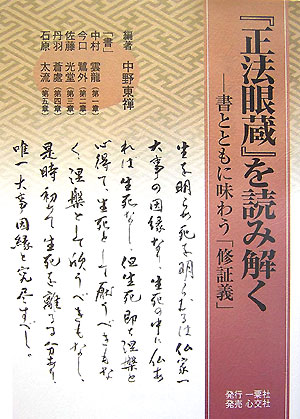 『正法眼蔵』を読み解く
──書とともに味わう「修証義」
編著 中野東禅
「書」
中村 雲龍(第一章)
今口 鷺外(第二章)
佐藤 光堂(第三章)
丹羽 蒼處(第四章)
石原 太流(第五章)
生を明らめ死を明らむるは仏家一
大事の因縁なり生死の中に仏あ
れは生死なし但生死即ち涅槃と
心得て生死として厭うべきもな
く涅槃として欣うべきもなし
是時初めて生死を離るる分あり
唯一大事因縁と究尽すべし。
発行 一粟社
発売 心交社